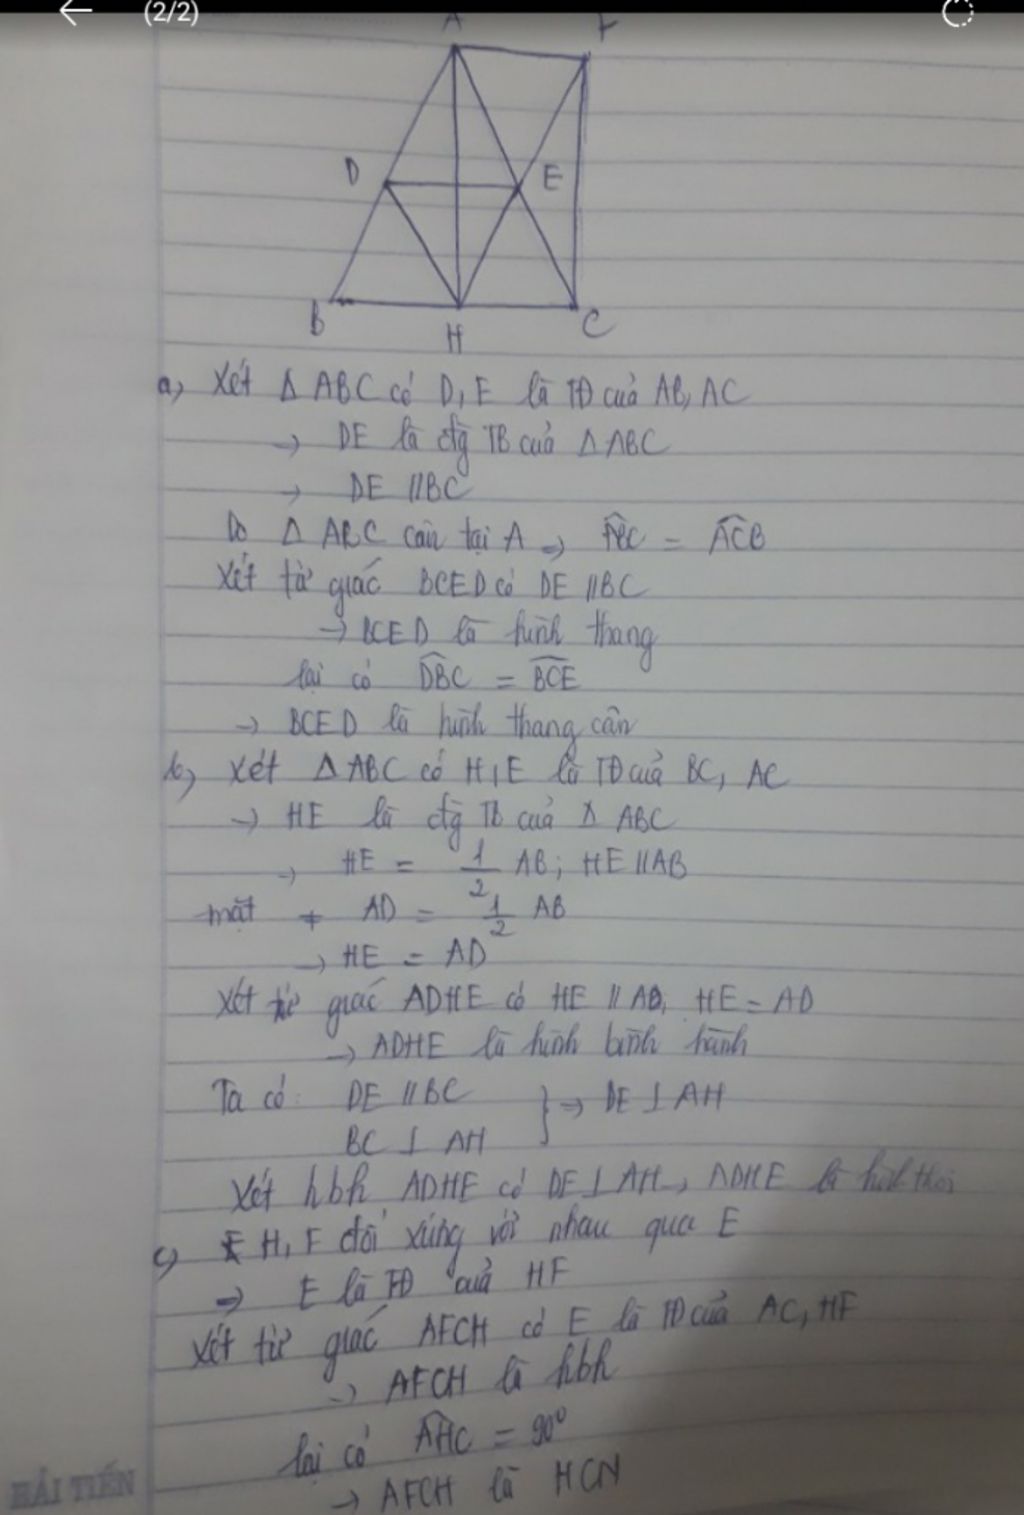 (2/2)
A F
D E
B H C
a, Xét Δ ABC có D, E là TĐ của AB, AC
→ DE là đg TB của Δ ABC
→ DE // BC
Do Δ ABC cân tại A => ABC = ACB
Xét tứ giác BCED có DE // BC
→ BCED là hình thang
lại có DBC = BCE
→ BCED là hình thang cân
b, Xét Δ ABC có H, E là TĐ của BC, AC
→ HE là đg TB của Δ ABC
→ HE = 1/2 AB; HE // AB
mặt + AD = 1/2 AB
→ HE = AD
Xét tứ giác ADHE có HE // AD, HE = AD
→ ADHE là hình bình hành
Ta có: DE // BC
BC ⊥ AH } => DE ⊥ AH
Xét hbh ADHE có DE ⊥ AH → ADHE là hình thoi
c, H, F đối xứng với nhau qua E
=> E là TĐ của HF
Xét tứ giác AFCH có E là TĐ của AC, HF
→ AFCH là hbh
lại có AHC = 90°
→ AFCH là HCN
HẢI TIẾN